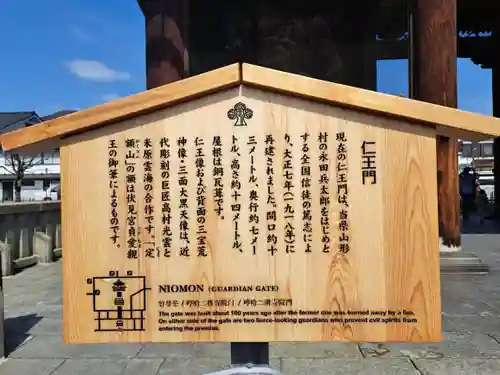 仁王門
現在の仁王門は、当県山形
村の永田兵太郎をはじめと
する全国信徒の篤志によ
り、大正七年(一九一八年)に
再建されました。間口約十
三メートル、奥行約七メー
トル、高さ約十四メートル、
屋根は銅瓦葺です。
仁王像および背面の三宝荒
神像・三面大黒天像は、近
代彫刻の巨匠高村光雲と
米原雲海の合作です。「定
額山」の額は伏見宮貞愛親
王の御筆によるものです。
NIOMON (GUARDIAN GATE)
The gate was built about 100 years after the former one was burned away by a fire.
On either side of the gate are two fierce-looking guardians who prevent evil spirits from
entering the premise.